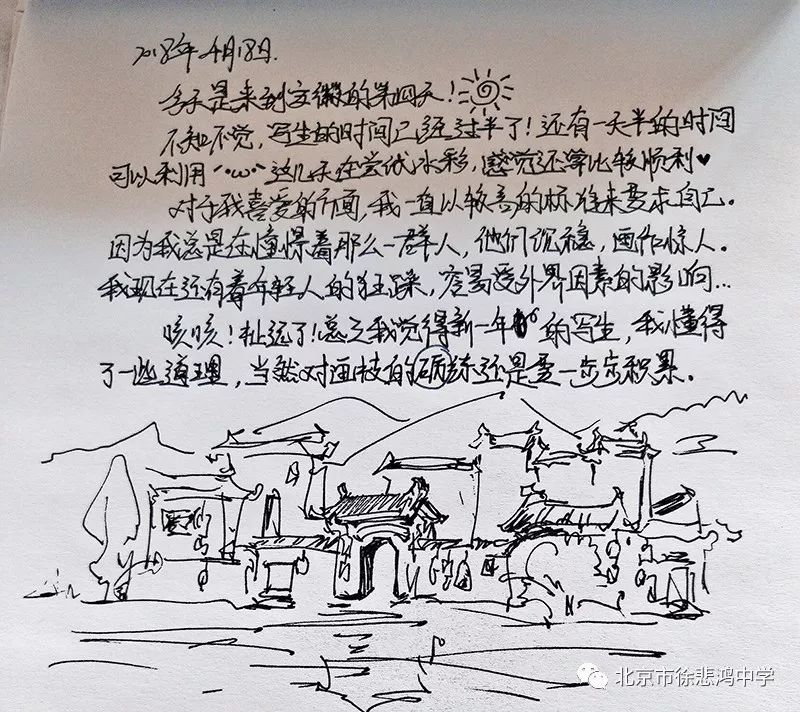 2018年4月18日.
今天是来到安徽的第四天!
不知不觉,写生的时间已经过半了!还有一天半的时间
可以利用 ´•ω•` 这几天在尝试水彩,感觉还算比较顺利♥
对于我喜爱的方面,我一直以较高的标准来要求自己。
因为我总是在憧憬着那么一群人,他们沉稳,画作惊人.
我现在还有着年轻人的狂躁,容易受外界因素的影响…
咳咳!扯远了!总之我觉得新一年的写生,我懂得
了一些道理,当然对画技的磨练还是要一步步积累。
北京市徐悲鸿中学